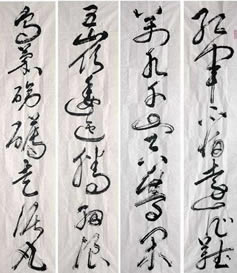 紅軍不怕遠征難
萬水千山只等閑
五嶺逶迤騰細浪
烏蒙磅礴走泥丸